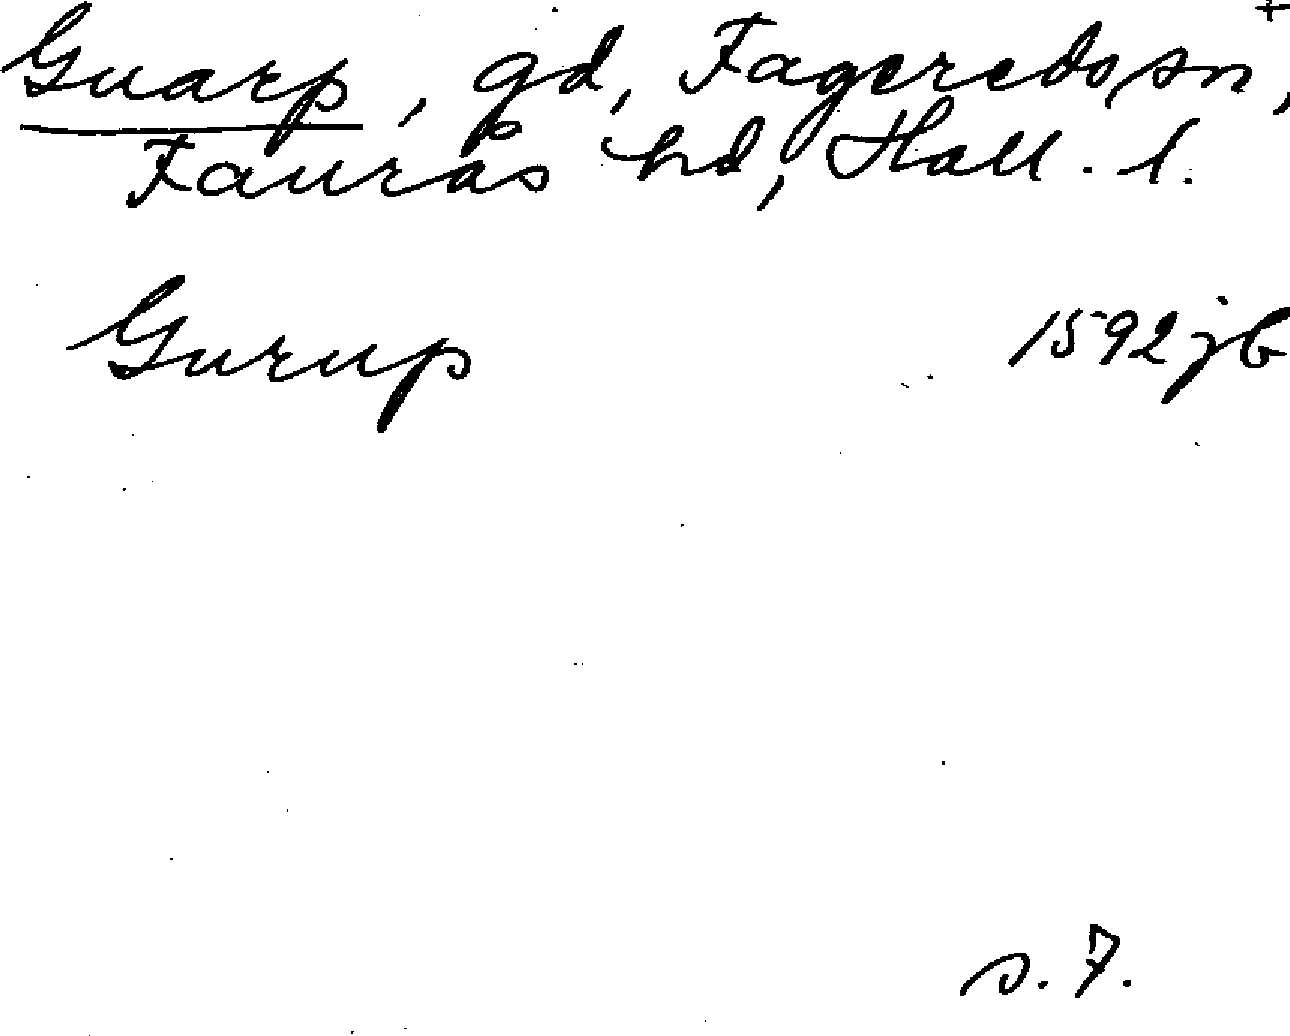 +
Guarp, gd, Fagereds sn,
Faurås hd, Hall. l.
Gurup 1592 jb
s. 7.